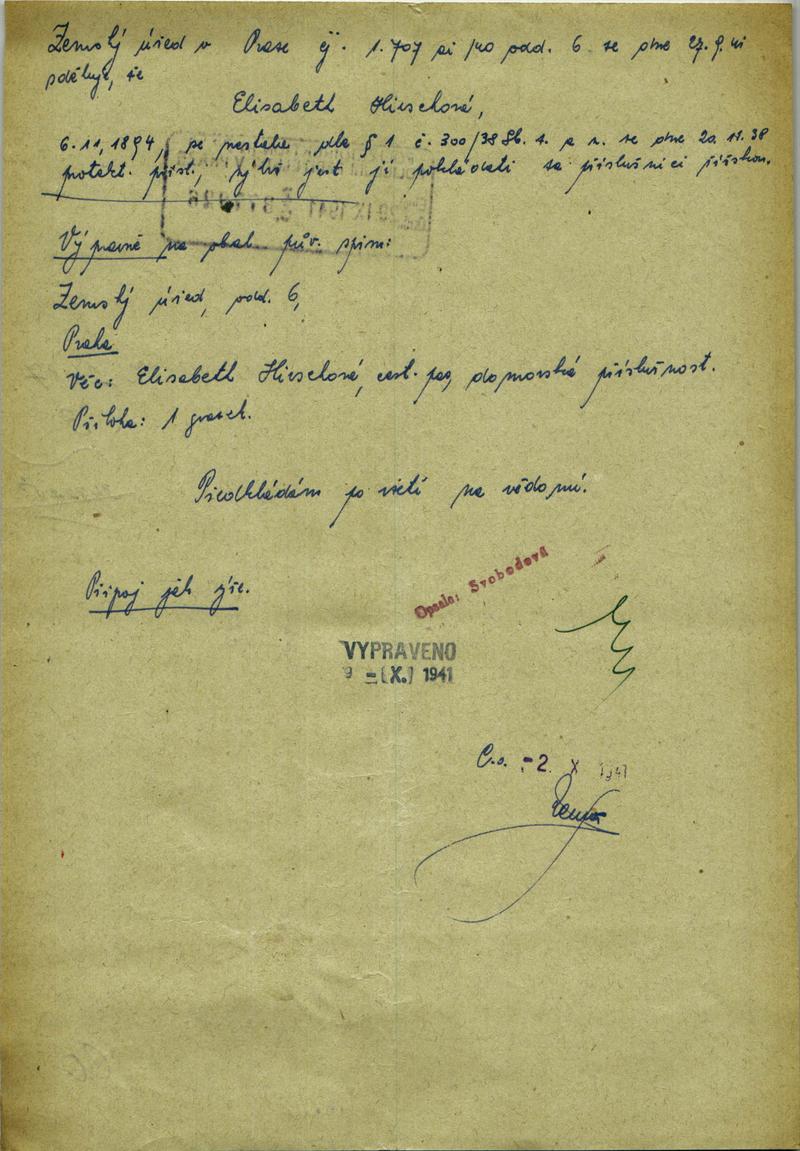 Zemský úřad v Praze čj. 1.707 ai/40 odd. 6 ze dne 27.9.41
sděluje, že
Elisabeth Hirschová,
6.11.1894, se nestala dle § 1 č. 300/38 Sb. z. a n. ze dne 20.11.38
protekt. přísl., nýbrž jest ji pokládati za příslušnici říšskou.
Výpravně na obal pův. spisu:
Zemský úřad, odd. 6,
Praha
Věc: Elisabeth Hirschová, cest. pas, domovská příslušnost.
Příloha: 1 svazek.
Předkládám po vzetí na vědomí.
Připoj jak výše.
Opsala: Svobodová
VYPRAVENO
9 - X. 1941
C.o. -2. X 1941